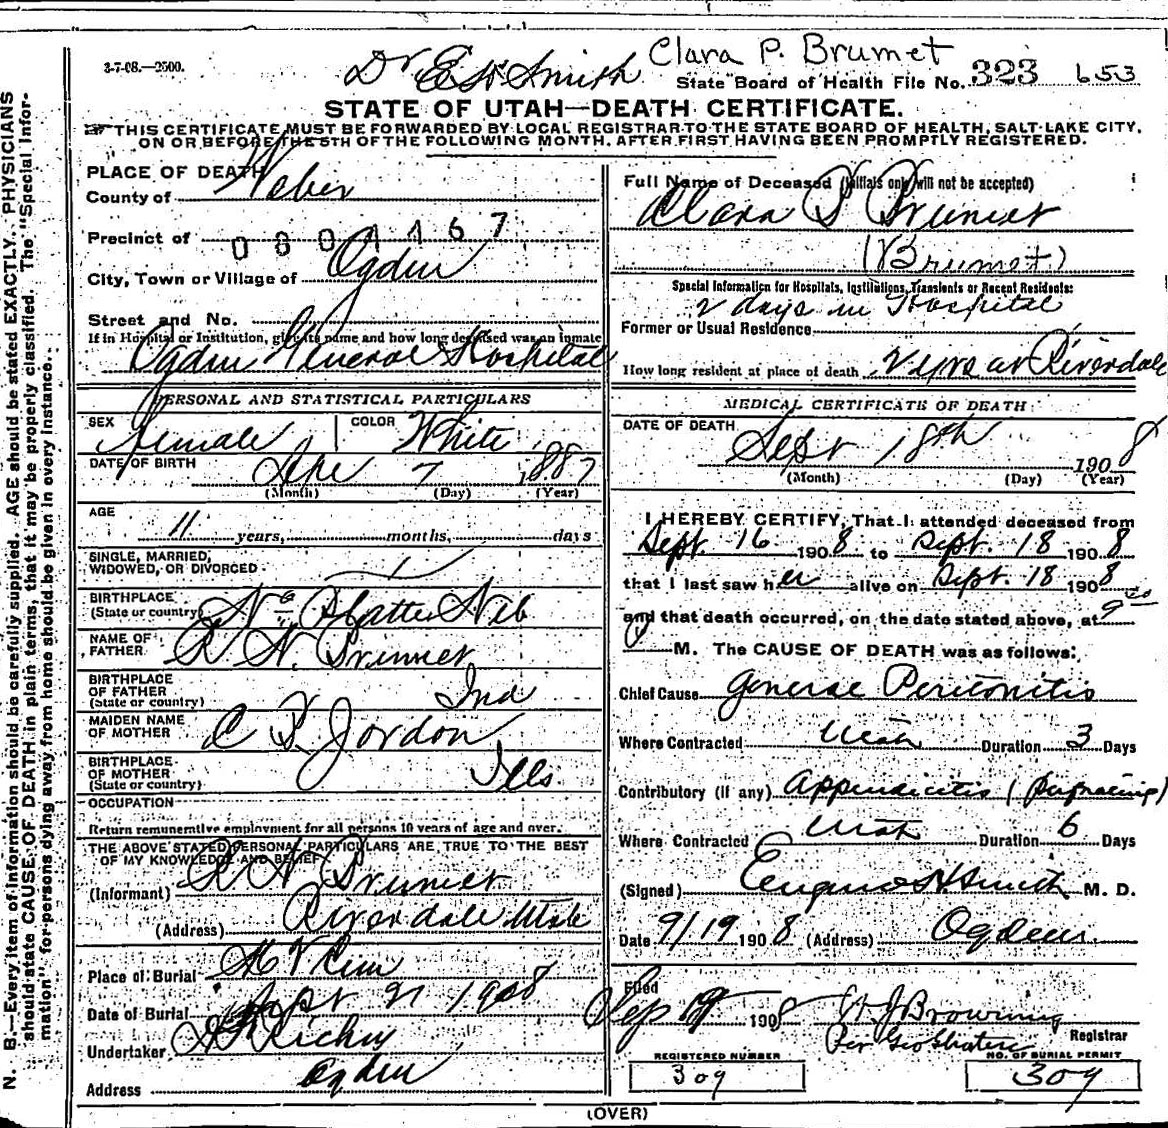 3-7-08.—2500.
Dr E. H. Smith
Clara P. Brumet
State Board of Health File No. 323 653
STATE OF UTAH—DEATH CERTIFICATE.
THIS CERTIFICATE MUST BE FORWARDED BY LOCAL REGISTRAR TO THE STATE BOARD OF HEALTH, SALT LAKE CITY,
ON OR BEFORE THE 5TH OF THE FOLLOWING MONTH, AFTER FIRST HAVING BEEN PROMPTLY REGISTERED.
PLACE OF DEATH
County of Weber
Precinct of
City, Town or Village of Ogden
Street and No.
If in Hospital or Institution, give its name and how long deceased was an inmate
Ogden General Hospital
PERSONAL AND STATISTICAL PARTICULARS
SEX Female COLOR White
DATE OF BIRTH 7 1887
(Month) (Day) (Year)
AGE 11 years, months, days
SINGLE, MARRIED,
WIDOWED, OR DIVORCED
BIRTHPLACE
(State or country) No Platte Neb
NAME OF
FATHER
BIRTHPLACE
OF FATHER
(State or country) Ind
MAIDEN NAME
OF MOTHER C P. Jordon
BIRTHPLACE
OF MOTHER
(State or country) Ills.
OCCUPATION
Return remunerative employment for all persons 10 years of age and over.
THE ABOVE STATED PERSONAL PARTICULARS ARE TRUE TO THE BEST
OF MY KNOWLEDGE AND BELIEF
(Informant)
(Address) Riverdale Utah
Place of Burial
Date of Burial Sept 21 1908
Undertaker
Address Ogden
Full Name of Deceased (Initials only will not be accepted)
Clara P Brumet
(Brumet)
Special Information for Hospitals, Institutions, Transients or Recent Residents:
2 days in Hospital
Former or Usual Residence
How long resident at place of death 2 yrs at Riverdale
MEDICAL CERTIFICATE OF DEATH
DATE OF DEATH
Sept 18th 1908
(Month) (Day) (Year)
I HEREBY CERTIFY, That I attended deceased from
Sept. 16 1908 to Sept. 18 1908
that I last saw her alive on Sept. 18 1908
and that death occurred, on the date stated above, at 9
M. The CAUSE OF DEATH was as follows:
Chief Cause General Peritonitis
Where Contracted Utah Duration 3 Days
Contributory (if any) Appendicitis
Where Contracted Utah Duration 6 Days
(Signed) Eugene H Smith M. D.
Date 9/19 1908 (Address) Ogden.
Filed
Sep 19 1908 Browning
Per Registrar
REGISTERED NUMBER
309
NO. OF BURIAL PERMIT
309
(OVER)
N. B.—Every item of information should be carefully supplied. AGE should be stated EXACTLY. PHYSICIANS
should state CAUSE OF DEATH in plain terms, that it may be properly classified. The "Special Infor-
mation" for persons dying away from home should be given in every instance.